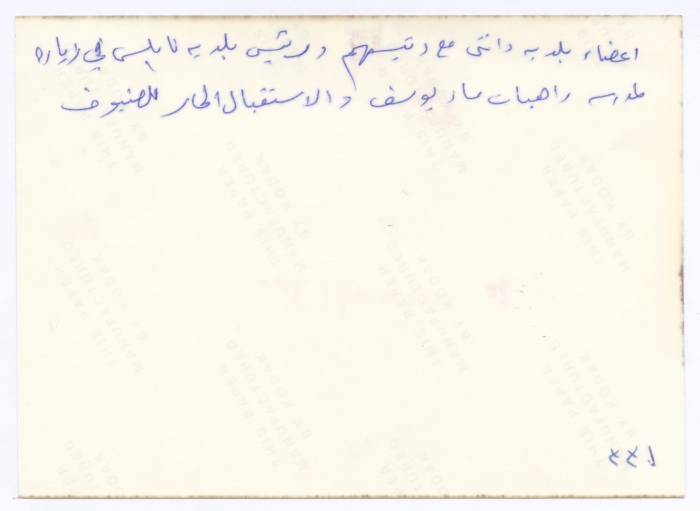 اعضاء بلديه دانتي مع رئيسهم ورئيس بلديه نابلس في زياره
لمدرسه راهبات مار يوسف والاستقبال الحار للضيوف
THIS PAPER
MANUFACTURED
BY KODAK